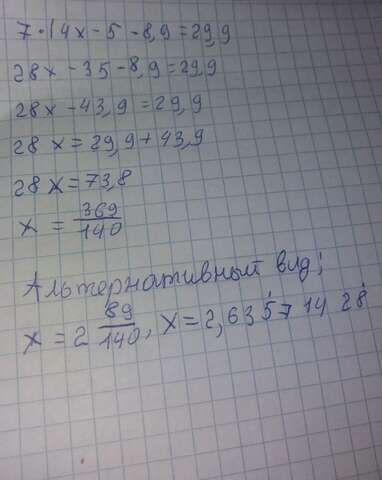 7·(4x-5-8,9=29,9
28x-35-8,9=29,9
28x-43,9=29,9
28x=29,9+43,9
28x=73,8
x=369/140
Альтернативный вид;
x=2 89/140, x=2,6357 14 28